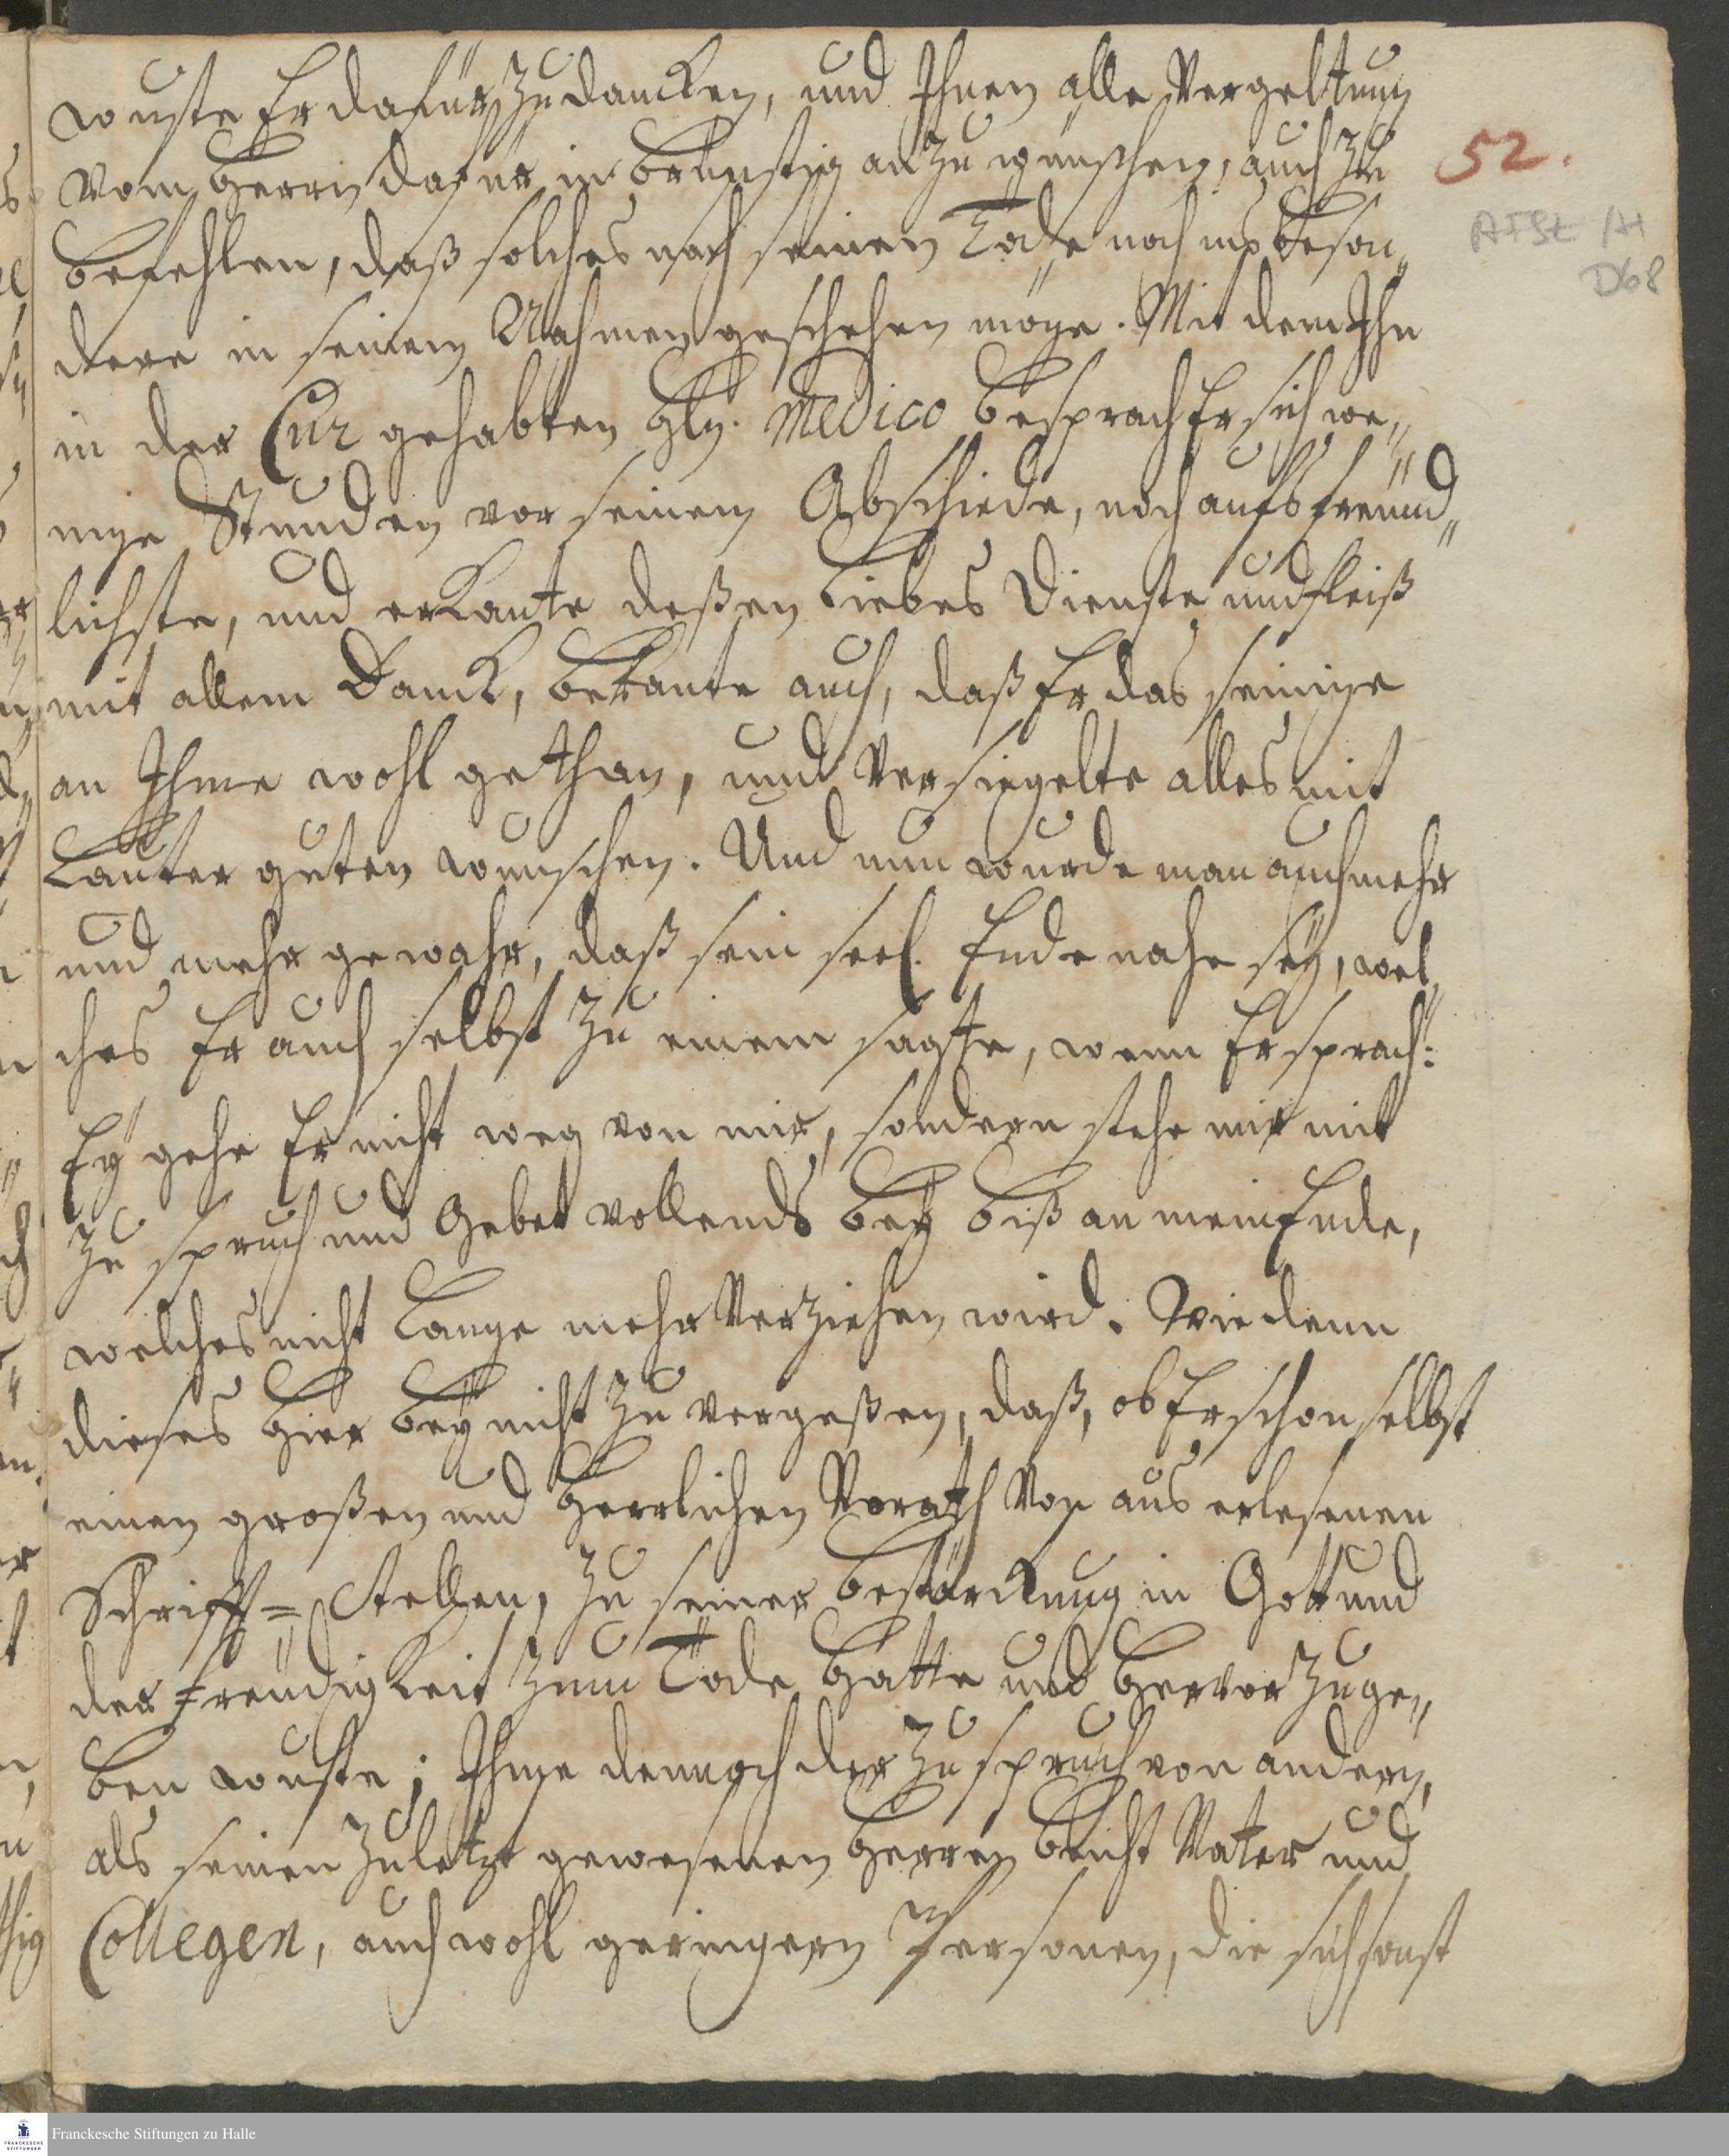 wuste Er dafür zu dancken, und Ihnen alle Vergeltung
vom Herrn dafür inbrünstig an zu wünschen, auch zu
befehlen, daß solches nach seinem Tode noch ins beson„
dere in seinem Nahmen geschehen möge. Mit dem Ihn
in der Cur gehabten Hln. Medico besprach Er sich we„
nige Stunden vor seinem Abschiede, noch aufs freund„
lichste, und erkante deßen Liebes Dienste und fleiß
mit allem Danck, bekante auch, daß Er das seinige
an Ihme wohl gethan, und versiegelte alles mit
Lauter guten wünschen. Und nun wurde man auch mehr
und mehr gewahr, daß sein seel. Ende nahe seÿ, wel„
ches Er auch selbst zu einem sagte, wenn Er sprach:
Eÿ gehe Er nicht weg von mir, sondern stehe mir mit
zu spruch und Gebet vollends beÿ biß an mein Ende,
welches nicht Lange mehr Verziehen wird. Wie denn
dieses hier beÿ nicht zu vergeßen, daß, ob Er schon selbst
einen großen und herrlichen Vorath von aus erlesenen
Schrifft=Stellen, zu seiner bestärckung in Gott und
der Freudigkeit zum Tode hatte und hervor zu ge„
ben wuste; Ihme dennoch der zu spruch von andern,
als seinen zuletzt gewesenen Herrn beicht Vater und
Collegen, auch wohl geringern Personen, die sich sonst
52.
AFSt /H
D68
Franckesche Stiftungen zu Halle
FRANCKESCHE
STIFTUNGEN